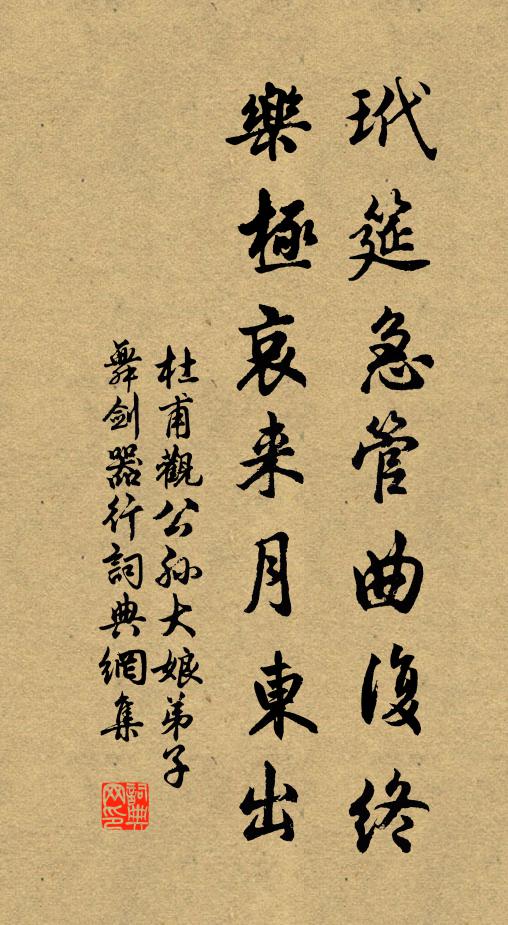 玳筵急管曲復終
樂極哀来月東出
杜甫觀公孫大娘弟子
舞劍器行詞典網集
詞典
网